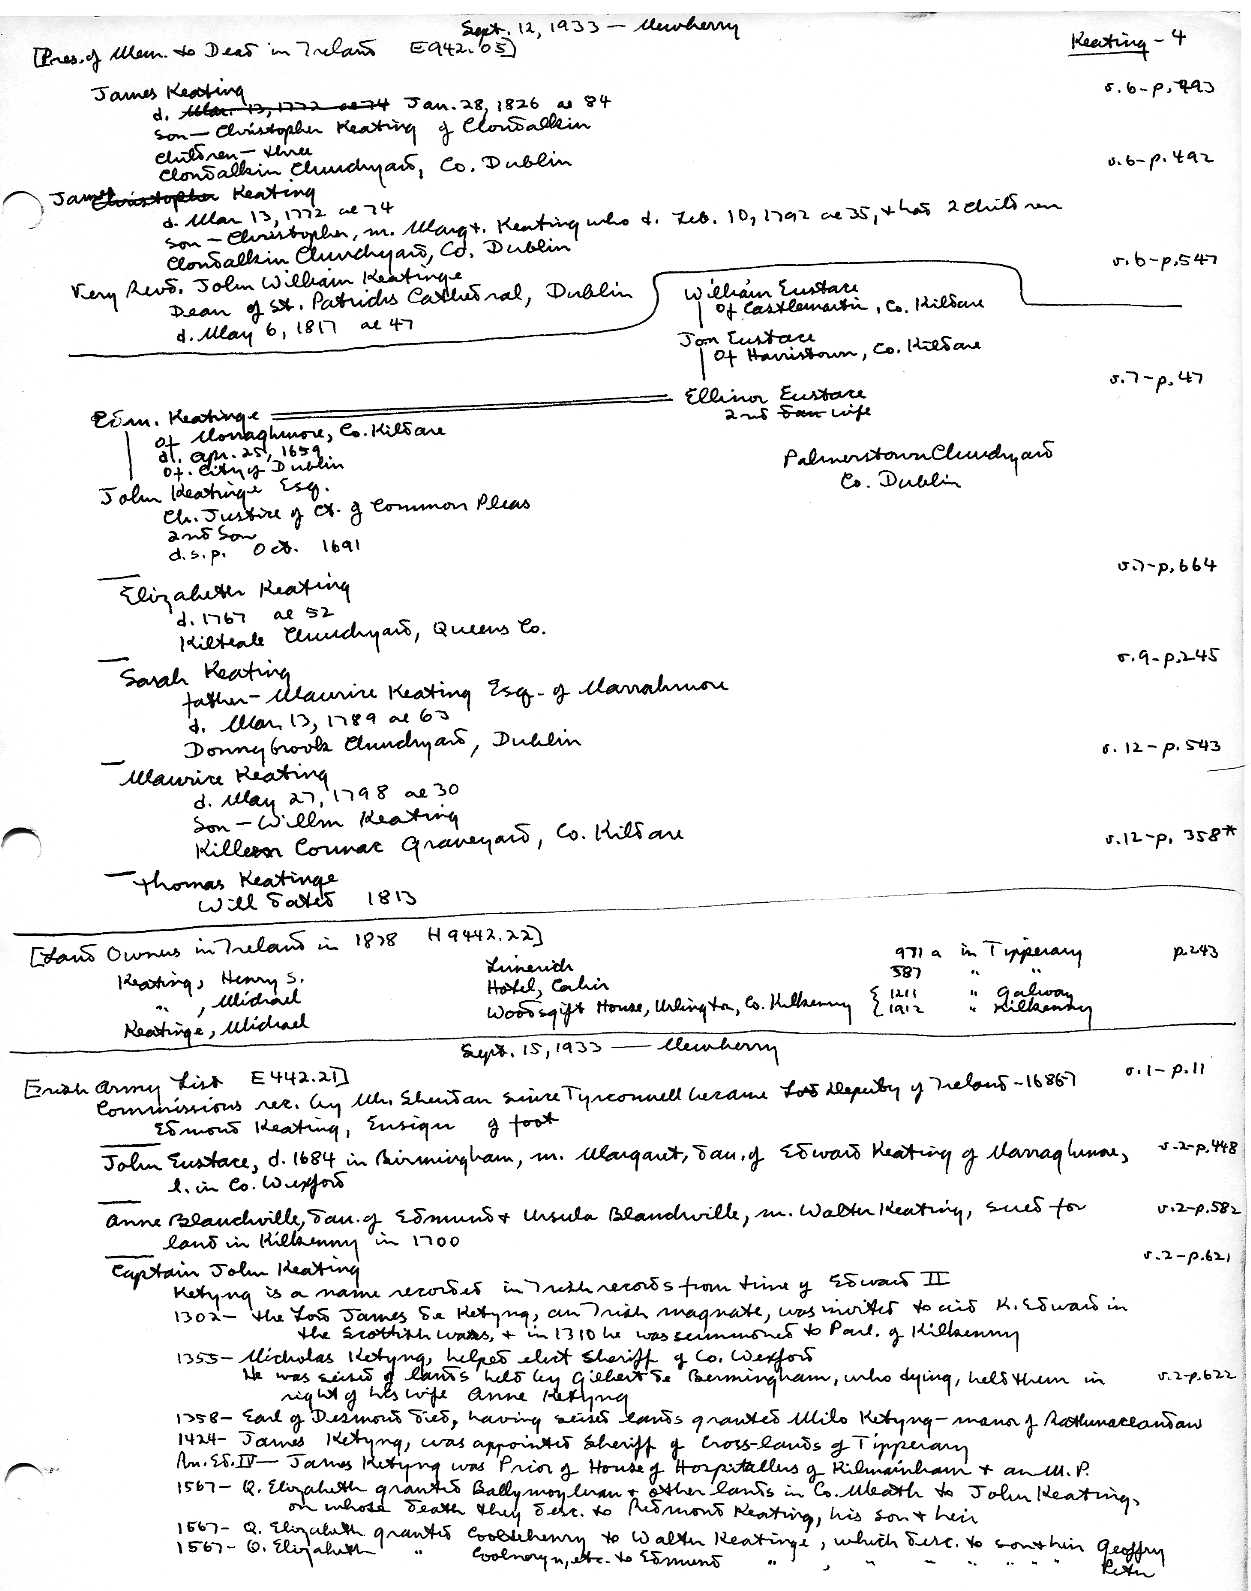 Sept. 12, 1933 — Newberry
[Pres. of Mem. to Dead in Ireland E942.05]
Keating - 4
James Keating v.6-p.493
d. Mar. 13, 1772 ae 74 Jan. 28, 1826 ae 84
son — Christopher Keating of Clondalkin
children — three
Clondalkin Churchyard, Co. Dublin v.6-p.492
James Christopher Keating
d. Mar 13, 1772 ae 74
son — Christopher, m. Margt. Keating who d. Feb. 10, 1792 ae 35, + had 2 children
Clondalkin Churchyard, Co. Dublin
Very Revd. John William Keatinge v.6-p.547
Dean of St. Patricks Cathedral, Dublin
d. May 6, 1817 ae 47
William Eustace
of Castlemartin, Co. Kildare
Jon Eustace
of Harristown, Co. Kildare
v.7-p.47
Edm. Keatinge Ellinor Eustace
2nd dau wife
of Norraghmore, Co. Kildare
dt. Apr. 25, 1659
of City of Dublin
Palmerstown Churchyard
Co. Dublin
John Keatinge Esq.
Ch. Justice of Ct. of Common Pleas
2nd Son
d.s.p. Oct. 1691
v.7-p.664
Elizabeth Keating
d. 1767 ae 52
Kilteale Churchyard, Queens Co.
v.9-p.245
Sarah Keating
father — Maurice Keating Esq. of Narrahmore
d. Mar. 13, 1789 ae 63
Donnybrook Churchyard, Dublin
v.12-p.543
Maurice Keating
d. May 27, 1798 ae 30
son — Willm Keating
Killeen Cormac Graveyard, Co. Kildare
v.12-p. 358*
Thomas Keatinge
Will dated 1813
[Land Owners in Ireland in 1878 H9442.22]
Keating, Henry S. Limerick 971 a in Tipperary p.243
" , Michael Hotel, Cahir 587 " "
Keatinge, Michael Woodsgift House, Urlington, Co. Kilkenny { 1211 " Galway
1912 " Kilkenny
Sept. 15, 1933 — Newberry
[Irish Army List E442.21] v.1-p.11
Commissions rec. by Mr. Sheridan since Tyrconnell became Lord Deputy of Ireland - 1686/7
Edmond Keating, Ensign of foot
John Eustace, d. 1684 in Birmingham, m. Margaret, dau. of Edward Keating of Narraghmore, v.2-p.448
l. in Co. Wexford
Anne Blanchville, dau. of Edmund + Ursula Blanchville, m. Walter Keating, sued for v.2-p.582
land in Kilkenny in 1700
v.2-p.621
Captain John Keating
Ketyng is a name recorded in Irish records from time of Edward II
1302 — the Lord James de Ketyng, an Irish magnate, was invited to aid K. Edward in
the Scottish wars, + in 1310 he was summoned to Parl. of Kilkenny
1355 — Nicholas Ketyng, helped elect Sheriff of Co. Wexford
He was seised of lands held by Gilbert de Bermingham, who dying, held them in v.2-p.622
right of his wife Anne Ketyng
1358 — Earl of Desmond died, having seised lands granted Milo Ketyng — manor of
1424 — James Ketyng, was appointed Sheriff of Cross-lands of Tipperary
An. Ed. IV — James Ketyng was Prior of House of Hospitallers of Kilmainham + an M.P.
1567 — Q. Elizabeth granted + other lands in Co. Meath to John Keating,
on whose death they desc. to Redmond Keating, his son + heir
1567 — Q. Elizabeth granted to Walter Keatinge, which desc. to son + heir Geoffry
1567 — Q. Elizabeth " etc. to Edmund " , " " " " " Peter